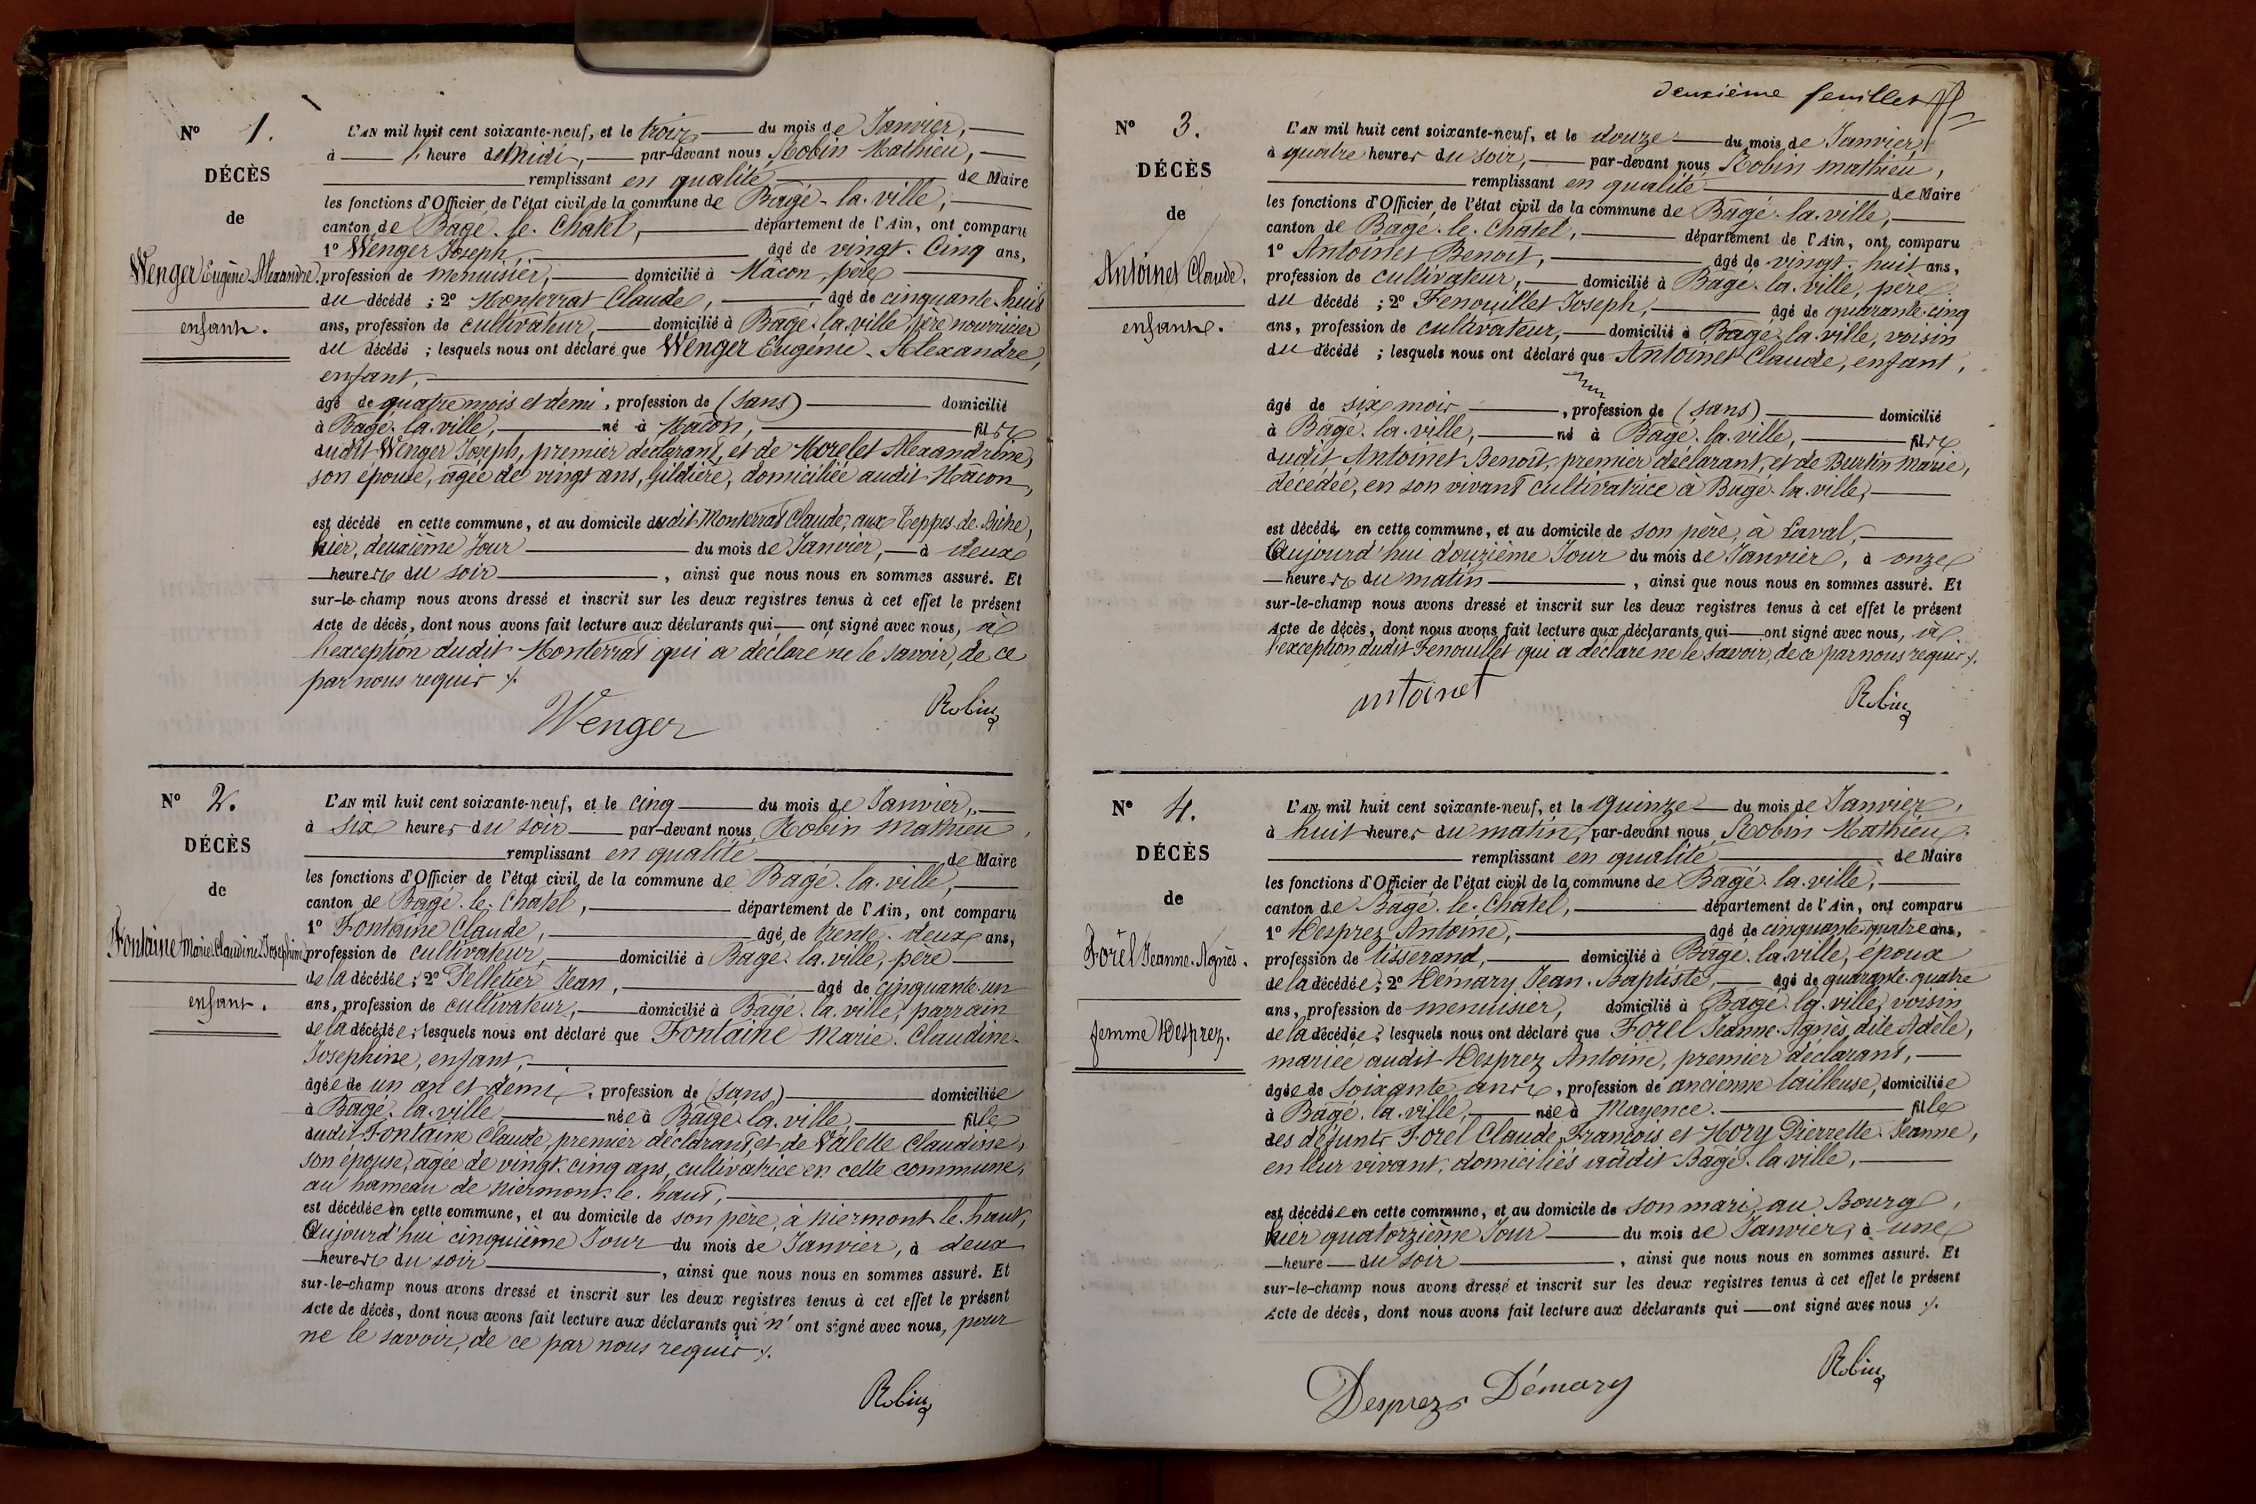 N° 1.
DÉCÈS
de
Wenger Eugène-Alexandre.
enfant.
L'AN mil huit cent soixante-neuf, et le trois du mois de Janvier,
à 1, heure de Midi, par-devant nous Robin Mathieu,
remplissant en qualité de Maire
les fonctions d'Officier de l'état civil de la commune de Bâgé-la-ville,
canton de Bâgé-le-Châtel, département de l'Ain, ont comparu
1° Wenger Joseph, âgé de vingt-Cinq ans,
profession de menuisier, domicilié à Mâcon, père
du décédé ; 2° Monterrat Claude, âgé de cinquante-huit
ans, profession de cultivateur, domicilié à Bâgé-la-ville, père nourricier
du décédé ; lesquels nous ont déclaré que Wenger Eugénie-Alexandre,
enfant,
âgé de quatre mois et demi, profession de (sans) domicilié
à Bâgé-la-ville, né à Mâcon, fils
dudit Wenger Joseph, premier déclarant, et de Morelet Alexandrine,
son épouse, âgée de vingt ans, Giletière, domiciliée audit Mâcon,
est décédé en cette commune, et au domicile dudit Monterrat Claude, aux Teppes-de-Biche,
hier, deuxième Jour du mois de Janvier, à deux
heures du soir, ainsi que nous nous en sommes assuré. Et
sur-le-champ nous avons dressé et inscrit sur les deux registres tenus à cet effet le présent
Acte de décès, dont nous avons fait lecture aux déclarants qui ont signé avec nous, à
l'exception dudit Monterrat qui a déclaré ne le savoir, de ce
par nous requis ./.
Wenger
Robin
N° 2.
DÉCÈS
de
Fontaine Marie-Claudine-Josephine
enfant.
L'AN mil huit cent soixante-neuf, et le cinq du mois de Janvier,
à six heures du soir par-devant nous Robin Mathieu,
remplissant en qualité de Maire
les fonctions d'Officier de l'état civil de la commune de Bâgé-la-ville,
canton de Bâgé-le-Châtel, département de l'Ain, ont comparu
1° Fontaine Claude, âgé de trente-deux ans,
profession de cultivateur, domicilié à Bâgé-la-ville, père
de la décédée ; 2° Pelletier Jean, âgé de cinquante-un
ans, profession de cultivateur, domicilié à Bâgé-la-ville, parrain
de la décédée ; lesquels nous ont déclaré que Fontaine Marie-Claudine-
Josephine, enfant,
âgée de un an et demi, profession de (sans) domiciliée
à Bâgé-la-ville née à Bâgé-la-ville fille
dudit Fontaine Claude, premier déclarant, et de Valette Claudine,
son épouse, âgée de vingt-cinq ans, cultivatrice en cette commune,
au hameau de Niermont-le-haut,
est décédée en cette commune, et au domicile de son père, à Niermont-le-haut,
Aujourd'hui cinquième Jour du mois de Janvier, à deux
heures du soir, ainsi que nous nous en sommes assuré. Et
sur-le-champ nous avons dressé et inscrit sur les deux registres tenus à cet effet le présent
Acte de décès, dont nous avons fait lecture aux déclarants qui n'ont signé avec nous, pour
ne le savoir, de ce par nous requis ./.
Robin
deuxième feuillet
N° 3.
DÉCÈS
de
Antoinet Claude.
enfant.
L'AN mil huit cent soixante-neuf, et le douze du mois de Janvier,
à quatre heures du soir, par-devant nous Robin Mathieu,
remplissant en qualité de Maire
les fonctions d'Officier de l'état civil de la commune de Bâgé-la-ville,
canton de Bâgé-le-Châtel, département de l'Ain, ont comparu
1° Antoinet Benoît, âgé de vingt-huit ans,
profession de cultivateur, domicilié à Bâgé-la-ville, père
du décédé ; 2° Fenouillet Joseph, âgé de quarante-cinq
ans, profession de cultivateur, domicilié à Bâgé-la-ville, voisin
du décédé ; lesquels nous ont déclaré que Antoinet Claude, enfant,
âgé de six mois, profession de (sans) domicilié
à Bâgé-la-ville, né à Bâgé-la-ville, fils
dudit Antoinet Benoît, premier déclarant, et de Burtin Marie,
décédée, en son vivant cultivatrice à Bâgé-la-ville,
est décédé en cette commune, et au domicile de son père, à Laval,
Aujourd'hui douzième Jour du mois de Janvier, à onze
heures du matin, ainsi que nous nous en sommes assuré. Et
sur-le-champ nous avons dressé et inscrit sur les deux registres tenus à cet effet le présent
Acte de décès, dont nous avons fait lecture aux déclarants qui ont signé avec nous, à
l'exception dudit Fenouillet qui a déclaré ne le savoir, de ce par nous requis ./.
antoinet
Robin
N° 4.
DÉCÈS
de
Forêt Jeanne-Agnès.
femme Desprez.
L'AN mil huit cent soixante-neuf, et le quinze du mois de Janvier,
à huit heures du matin, par-devant nous Robin Mathieu,
remplissant en qualité de Maire
les fonctions d'Officier de l'état civil de la commune de Bâgé-la-ville,
canton de Bâgé-le-Châtel, département de l'Ain, ont comparu
1° Desprez Antoine, âgé de cinquante-quatre ans,
profession de tisserand, domicilié à Bâgé-la-ville, époux
de la décédée ; 2° Démary Jean-Baptiste, âgé de quarante-quatre
ans, profession de menuisier, domicilié à Bâgé-la-ville, voisin
de la décédée ; lesquels nous ont déclaré que Forel Jeanne-Agnès, dite Adèle,
mariée audit Desprez Antoine, premier déclarant,
âgée de soixante ans, profession de ancienne tailleuse, domiciliée
à Bâgé-la-ville, née à Mayence. fille
des défunts Forêl Claude-François et Mory Pierrette-Jeanne,
en leur vivant, domiciliés audit Bâgé-la-ville,
est décédée en cette commune, et au domicile de son mari, au Bourg,
hier quatorzième Jour du mois de Janvier, à une
heure du soir, ainsi que nous nous en sommes assuré. Et
sur-le-champ nous avons dressé et inscrit sur les deux registres tenus à cet effet le présent
Acte de décès, dont nous avons fait lecture aux déclarants qui ont signé avec nous ./.
Desprez Démary
Robin